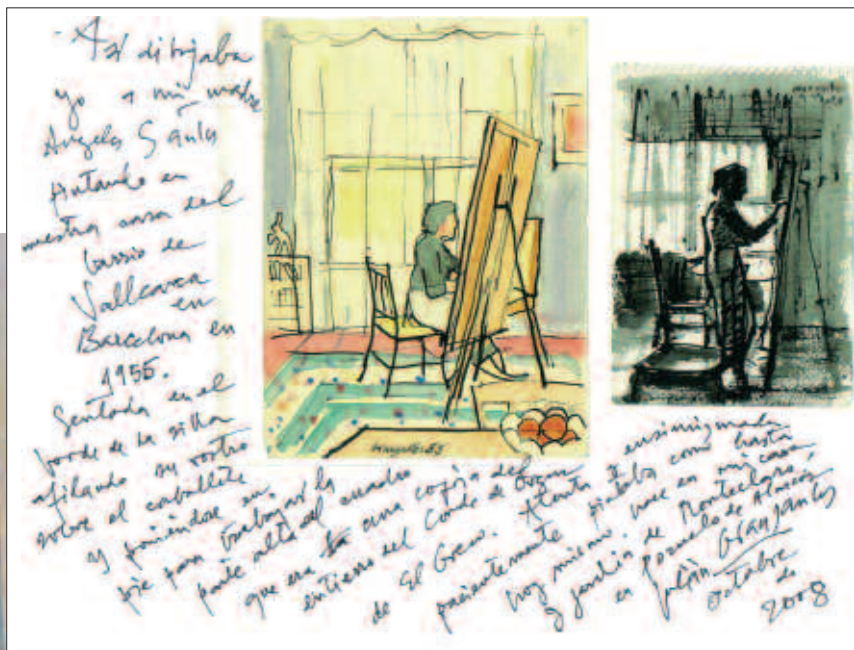 - Así dibujaba
yo a mi madre
Angeles Santos
pintando en
nuestra casa del
barrio de
Vallcarca
en
Barcelona en
1955.
Sentada en el
borde de la silla
afilando su rostro
sobre el caballete
y poniéndose en
pie para trabajar la
parte alta del cuadro
que era una copia del
entierro del Conde de Orgaz
de El Greco. Atenta y ensimismada
pacientemente pintaba como hasta
hoy mismo hace en mi casa
y jardín de Monteclaro,
en Pozuelo de Alarcón
Julián Grau Santos
Octubre
de
2008